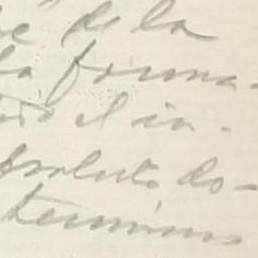 de la
la forma-
el in-
absoluto do-
terminos